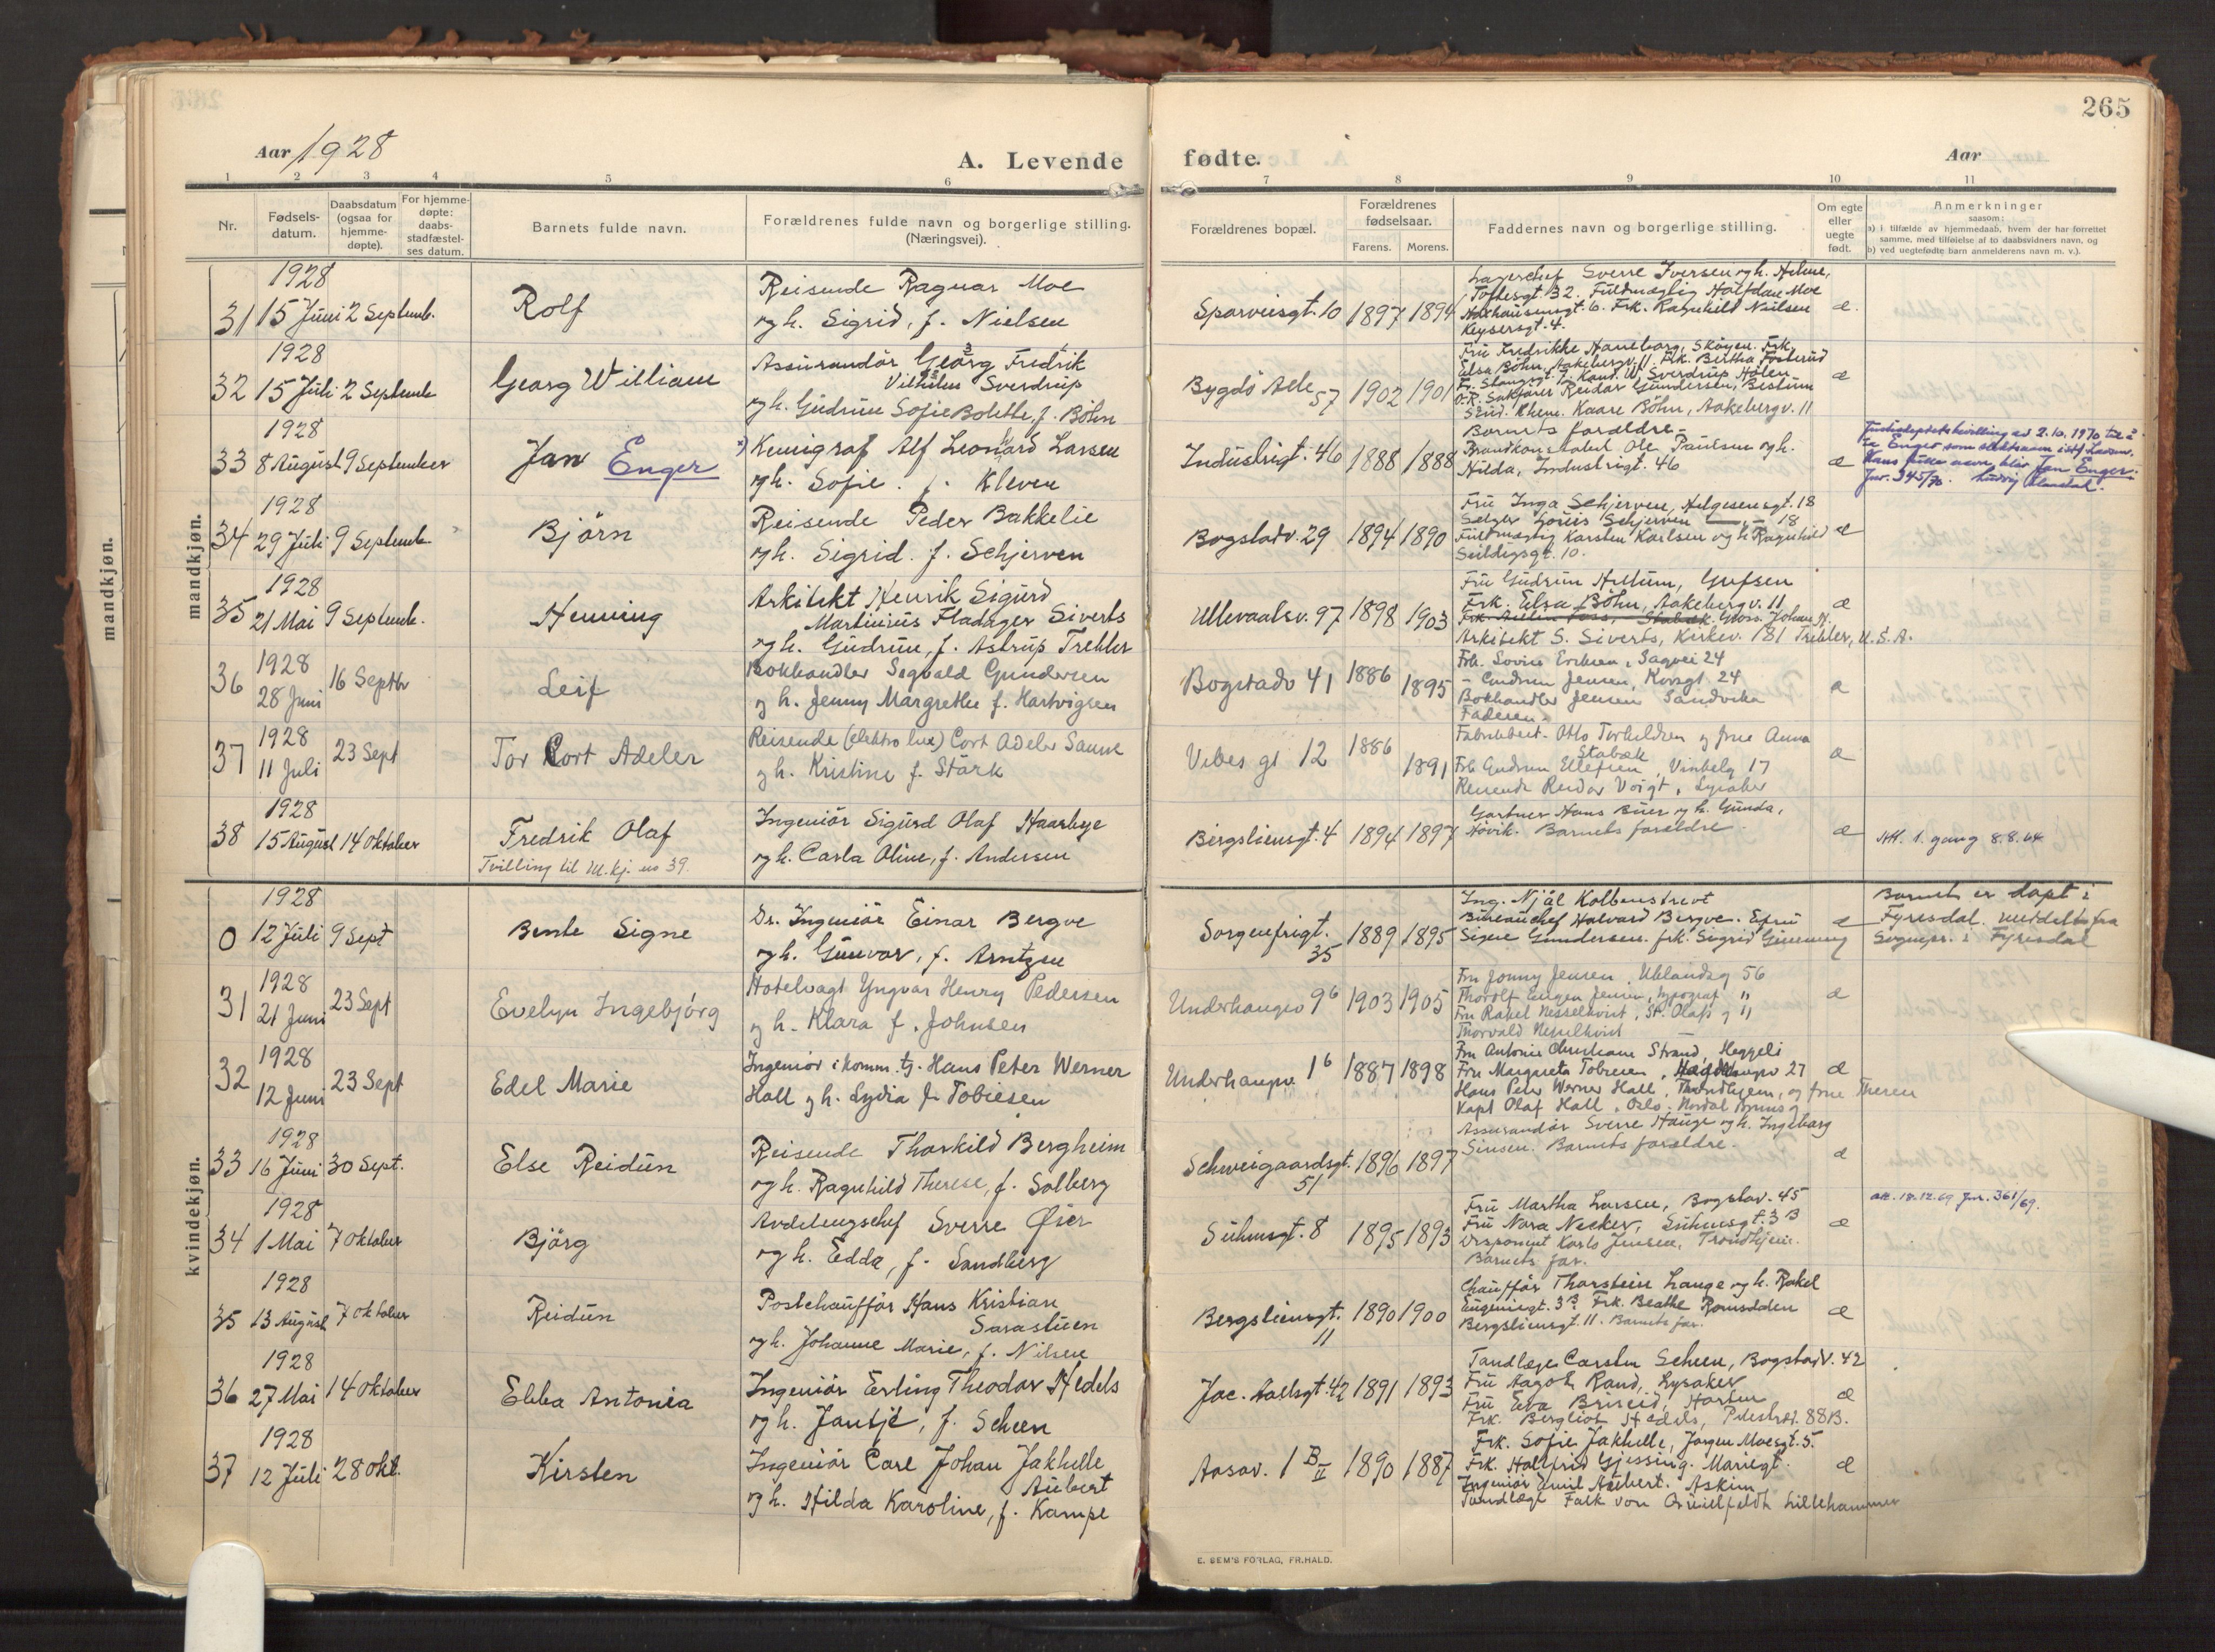 265
Aar 1928
A. Levende fødte.
Aar
1 2 3 4 5 6 7 8 9 10 11
Nr.
Fødsels-
datum.
Daabsdatum
(ogsaa for
hjemme-
døpte).
For hjemme-
døpte:
daabs-
stadfæstel-
ses datum.
Barnets fulde navn.
Forældrenes fulde navn og borgerlige stilling.
(Næringsvei).
Forældrenes bopæl.
Forældrenes
fødselsaar.
Farens. Morens.
Faddernes navn og borgerlige stilling.
Om egte
eller
uegte
født.
Anmerkninger
saasom:
a) i tilfælde av hjemmedaab, hvem der har forrettet
samme, med tilføielse af to daabsvidners navn, og
b) ved uegtefødte barn anmelderens navn m. v.).
mandkjøn.
mandkjøn.
1928
31 15 Juni 2 Septemb.
Rolf
Reisende Ragnar Moe
og h. Sigrid, f. Nielsen
Sparveisgt. 10 1897 1894
Lagerchef Sverre Iversen og h. Helene,
Toftesgt. 32. Fuldmægtig Halfdan Moe
6. Frk. Ragnhild Nielsen
Keysersgt. 4.
æ.
1928
32 15 Juli 2 Septemb
Georg William
Assurandør Georg Fredrik
Vilhelm Sverdrup
og h. Gudrun Sofie Bolette, f. Böhn
Bygdö Alle
57 1902 1901
Fru Fredrikke Haneborg, Sköyen. Frk.
Elsa Böhn, Aakebergv. 11. Frk. Bertha Fosterud
Kand. W. Sverdrup Holen
O.R. Sakförer Reidar Gundersen, Bestum
Stud. Chem. Kaare Böhn, Aakebergv. 11
æ
1928
33 8 August 9 September
Jan Enger
x) Kemigraf Alf Leonhard Larsen
og h. Sofie f. Kleven
Industrigt. 46 1888 1888
Barnets forældre -
Brandkonstabel Ole Paulsen og h.
Hilda, Industrigt. 46
æ
2.10.1970
Enger som slektsnavn istf Larsen.
Hans fulle navn blir Jan Enger.
Jnr. 345/70.
1928
34 29 Juli 9 Septemb
Björn
Reisende Peder Bakkelie
og h. Sigrid. f. Schjerven
Bogstadv. 29 1894 1890
Fru Inga Schjerven, Helgesensgt. 18
Selger Louis Schjerven — „ — 18
Fuldmægtig Karsten Karlsen og h. Ragnhild
Seildugsgt. 10.
æ
1928
35 21 Mai 9 Septemb.
Henning
Arkitekt Henrik Sigurd
Martinius Fladager Siverts
og h. Gudrun, f. Astrup Trebler
Ullevaalsv. 97 1898 1903
Fru Gudrun Hellum, Grefsen
Frk. Elsa Böhn, Aakebergv. 11
Stabæk. Gross. Johan H.
Arkitekt S. Siverts, Kirkev. 181 Trebler, U.S.A.
æ
1928
36 28 Juni 16 Septbr
Leif
Bokhandler Sigvald Gundersen
og h. Jenny Margrethe f. Hartvigsen
Bogstadv 41 1886 1895
Frk. Lovise Eriksen, Sagvei 24
- Gudrun Jensen, Korsgt. 24
Bokhandler Jensen Sandvika
Faderen.
æ
1928
37 11 Juli 23 Sept
Tor Cort Adeler
Reisende (elektro lux) Cort Adeler Sanne
og h. Kristine f. Stärk
Vibes gt 12 1886 1891
Fabrikbest. Otto Torkildsen og frue Anna
Stabæk
Frk Gudrun Ellefsen, Vinbelg 17
Reisende Reidar Voigt, Lysaker
æ
1928
38 15 August 14 Oktober
Fredrik Olaf
Tvilling til M.kj. no 39.
Ingeniör Sigurd Olaf Haarbye
og h. Carla Oline, f. Andersen
Bergsliensgt. 4 1894 1897
Gartner Hans Buer og h. Gunda,
Hövik. Barnets forældre.
æ
Att. 1. gang 8.8.64
kvindekjøn.
1928
0 12 Juli 9 Sept
Bente Signe
Dr. Ingeniör Einar Bergve
og h. Gunvor, f. Arntzen
Sorgenfrigt.
35 1889 1895
Ing. Njål Kolbenstvedt
Bureauchef Halvard Bergve. Efru
Signe Gundersen. frk. Sigrid
æ
Barnet er döpt i
Fyresdal. meddelt fra
Sognepr. i Fyresdal
1928
31 21 Juni 23 Sept
Evelyn Ingebjörg
Hotelvagt Yngvar Henry Pedersen
og h. Klara f. Johnsen
Underhaugsv 9b 1903 1905
Fru Jonny Jensen, Uelandsg 56
Thorolf Eugen Jensen, typograf "
Fru Rakel Nesselkvist, St. Olafs g 11
Thorvald Nesselkvist —
æ
1928
32 12 Juni 23 Sept
Edel Marie
Ingeniör i komm. tj. Hans Peter Werner
Hall og h. Lydia f. Tobiesen
Underhaugsv. 1b 1887 1898
Fru Antonie Christiane Strand, Heggeli
Fru Margrete Tobiesen, 27
Hans Peter Werner Hall, Trondhjem, og frue Theren
Kapt Olaf Hall, Oslo. Nordal Bruns g
æ
1928
33 16 Juni 30 Sept.
Else Reidun
Reisende Thorkild Bergheim
og h. Ragnhild Therese, f. Solberg
Schweigaardsgt.
51 1896 1897
Assurandör Sverre Hauge og h. Ingeborg
Sinsen. Barnets forældre.
æ
1928
34 1 Mai 7 Oktober
Björg
Avdelingschef Sverre Öier
og h. Edda, f. Sandberg
Suhmsgt. 8 1895 1893
Fru Martha Larsen, Bogstav. 45
Fru Nora Necker, Suhmsgt. 3B
Disponent Karlo Jensen, Trondhjem.
Barnets far.
æ
att. 18.12.69 Jnr. 361/69.
1928
35 13 August 7 Oktober
Reidun
Postchauffør Hans Kristian
Sarastuen
og h. Johanne Marie, f. Nilsen
Bergsliensgt.
11 1890 1900
Chauffør Thorstein Lange og h. Rakel
Eugeniagt. 3B. Frk. Beathe Romsdalen
Bergsliensgt. 11. Barnets far.
æ
1928
36 27 Mai 14 Oktober
Ebba Antonia
Ingeniör Erling Theodor Hedels
og h. Jantje, f. Scheen
Jac. Aallsgt. 42 1891 1893
Tandlæge Carsten Scheen, Bogstadv. 42
Fru Aagot Rand, Lysaker
Fru Eva Brineid, Horten
Frk. Bergliot Hedels, Pilestræd. 88B.
æ
1928
37 12 Juli 28 Okt.
Kirsten
Ingeniör Carl Johan Jakhelle
Aubert
og h. Hilda Karoline, f. Kampe
Aasav. 1 B II 1890 1887
Frk. Sofie Jakhelle, Jørgen Moesgt. 5.
Frk. Halfrid Gjessing. Mariegt.
Ingeniör Emil Aubert. Askim
Tandlæge Falk von Lillehammer
æ
E. SEM'S FORLAG, FR.HALD.